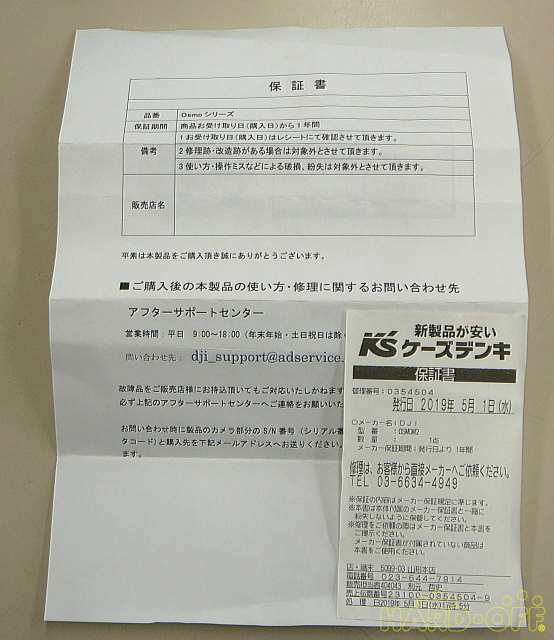 保証書
品番 Osmo シリーズ
保証期間 商品お受け取り日(購入日)から1年間
備考
1お受け取り日(購入日)はレシートにて確認させて頂きます。
2修理跡・改造跡がある場合は対象外とさせて頂きます。
3使い方・操作ミスなどによる破損、紛失は対象外とさせて頂きます。
販売店名
平素は本製品をご購入頂き誠にありがとうございます。
■ご購入後の本製品の使い方・修理に関するお問い合わせ先
アフターサポートセンター
営業時間:平日 9:00~18:00(年末年始・土日祝日は除く
問い合わせ先: dji_support@adservice.
故障品をご販売店様にお持込頂いてもご対応いたしかねます
必ず上記のアフターサポートセンターへご連絡をお願いいた
お問い合わせ時に製品のカメラ部分の S/N 番号(シリアル番
タコード)と購入先を下記メールアドレスへお送りください。
ます。
新製品が安い
K'S ケーズデンキ
保証書
管理番号:0354504
発行日 2019年 5月 1日(水)
○メーカー名:DJI
型 番 :OSMOM2
数 量 : 1点
メーカー保証期間:発行日より 1年間
修理は、お客様から直接メーカーへご依頼ください。
TEL 03-6634-4949
※保証の内容はメーカー保証規定に準じます。
※本書は本体付属のメーカー保証書と一緒に
紛失しないように保管してください。
※修理をご依頼の際はメーカー保証書と本書を
ご提示ください。
メーカー保証書が付属されていない商品は
本書をご使用ください。
店・端末 5099-03 山形本店
電話番号 023-644-7914
販売担当者404043
売上伝票番号23100-0354504-9
処 理 日2019年 5月 1日(水)
HARD-OFF